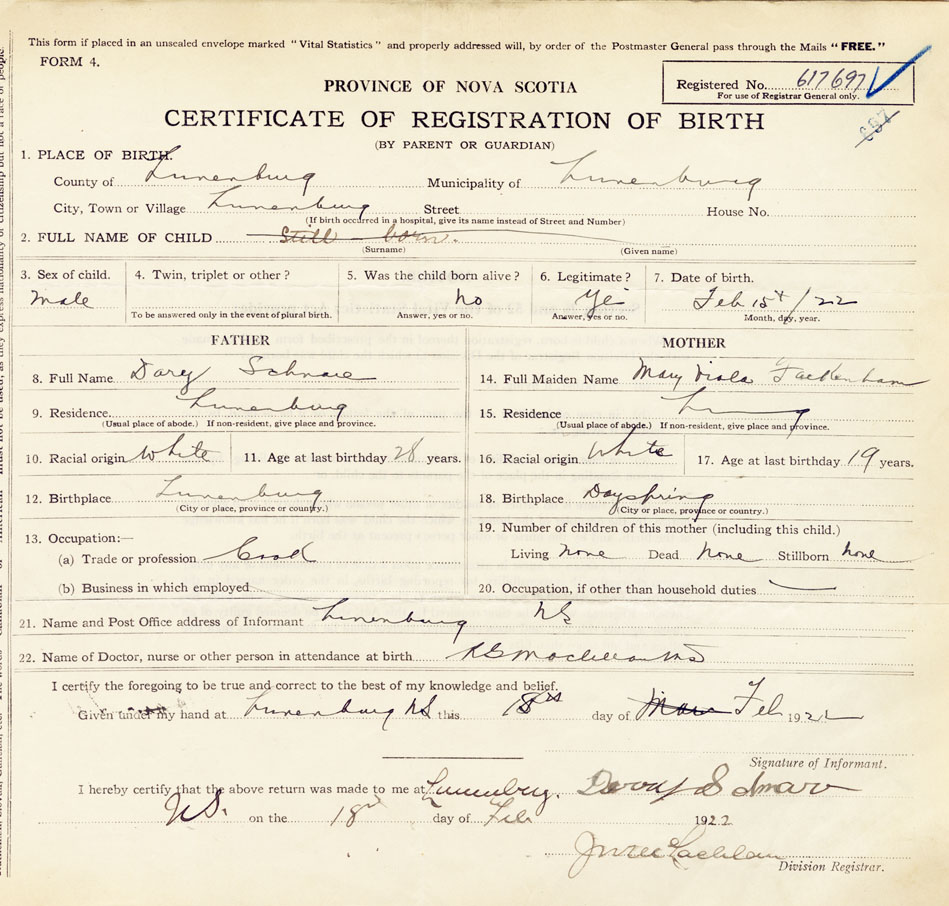 This form if placed in an unsealed envelope marked "Vital Statistics" and properly addressed will, by order of the Postmaster General pass through the Mails "FREE."
FORM 4.
Registered No. 617697
For use of Registrar General only.
PROVINCE OF NOVA SCOTIA
CERTIFICATE OF REGISTRATION OF BIRTH
(BY PARENT OR GUARDIAN)
1. PLACE OF BIRTH.
County of Lunenburg Municipality of Lunenburg
City, Town or Village Lunenburg Street House No.
(If birth occurred in a hospital, give its name instead of Street and Number)
2. FULL NAME OF CHILD Still born.
(Surname) (Given name)
3. Sex of child. 4. Twin, triplet or other? 5. Was the child born alive? 6. Legitimate? 7. Date of birth.
Male no Yes Feb 15th/22
To be answered only in the event of plural birth. Answer, yes or no. Answer, yes or no. Month, day, year.
FATHER MOTHER
8. Full Name Schnare 14. Full Maiden Name Mary Viola
9. Residence Lunenburg 15. Residence
(Usual place of abode.) If non-resident, give place and province. (Usual place of abode.) If non-resident, give place and province.
10. Racial origin White 11. Age at last birthday 28 years. 16. Racial origin White 17. Age at last birthday 19 years.
12. Birthplace Lunenburg 18. Birthplace Dayspring
(City or place, province or country.) (City or place, province or country.)
13. Occupation:— 19. Number of children of this mother (including this child.)
(a) Trade or profession Cook Living none Dead none Stillborn none
(b) Business in which employed 20. Occupation, if other than household duties
21. Name and Post Office address of Informant Lunenburg NS
22. Name of Doctor, nurse or other person in attendance at birth
I certify the foregoing to be true and correct to the best of my knowledge and belief.
Given under my hand at Lunenburg NS this 18th day of Mar Feb 1922
Signature of Informant.
I hereby certify that the above return was made to me at Lunenburg.
NS. on the 18th day of Feb 1922
Division Registrar.